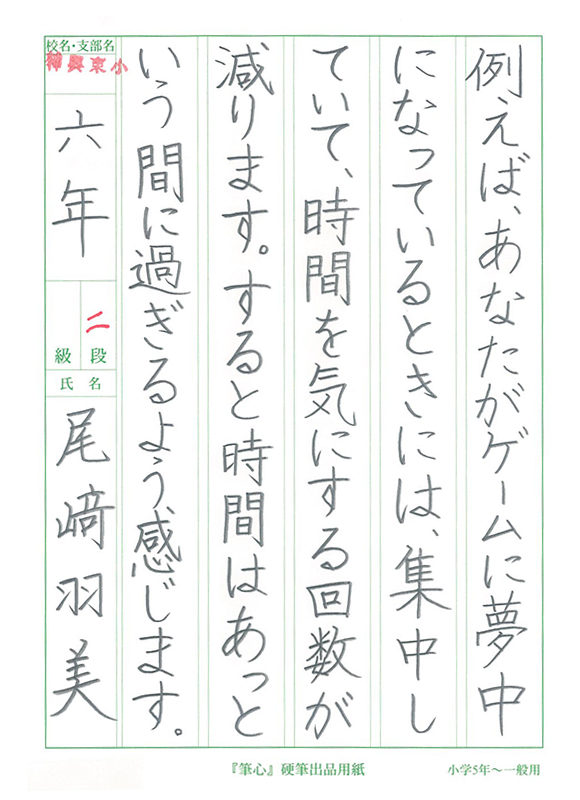 例えば、あなたがゲームに夢中
になっているときには、集中し
ていて、時間を気にする回数が
減ります。すると時間はあっと
いう間に過ぎるよう、感じます。
校名・支部名
神興東小
六年
二
段
級
氏名
尾﨑羽美
『筆心』硬筆出品用紙
小学5年～一般用